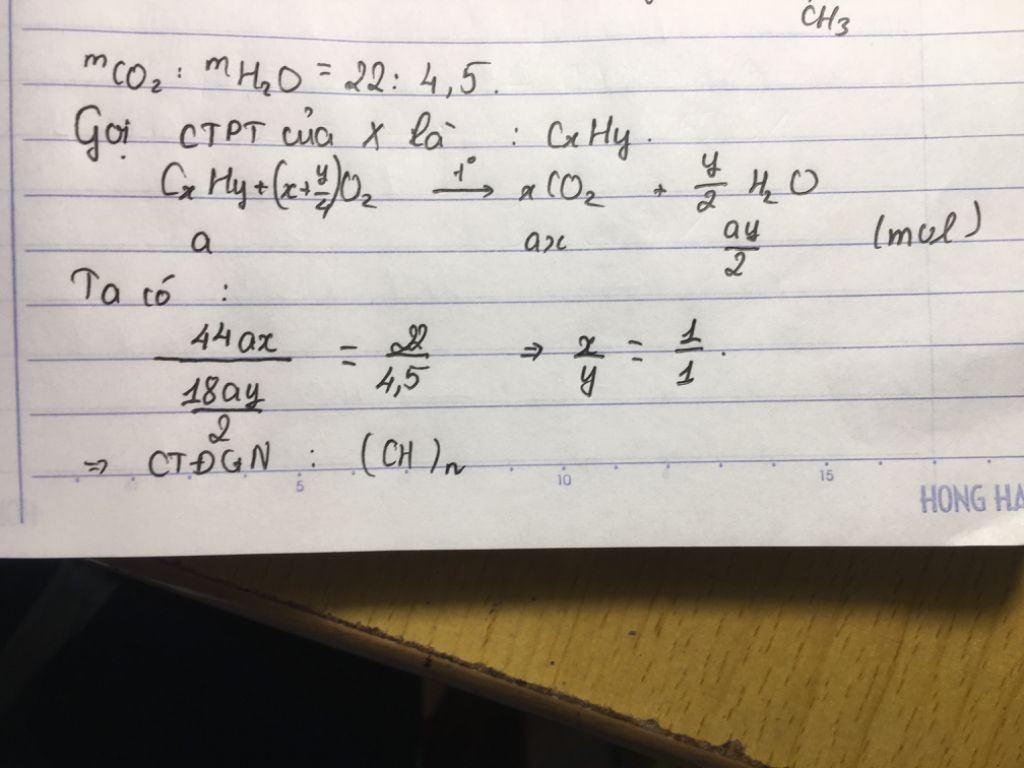 CH₃
mCO₂ : mH₂O = 22 : 4,5.
Gọi CTPT của X là : CxHy.
CxHy + (x + y/4)O₂ —t°→ xCO₂ + y/2 H₂O
a ax ay/2 (mol)
Ta có :
44ax / (18ay/2) = 22/4,5 ⇒ x/y = 1/1.
⇒ CTĐGN : (CH)n
5 10 15
HONG HA